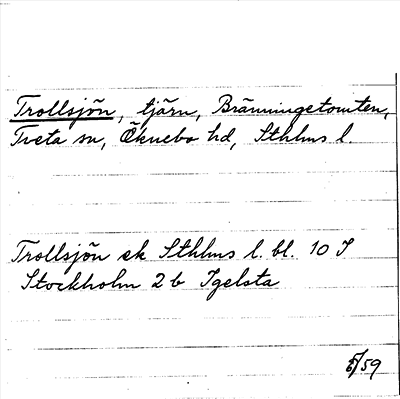 Trollsjön, tjärn, Bränningetomten,
Tveta sn, Öknebo hd, Sthlms l.
Trollsjön ek Sthlms l. bl. 10 I
Stockholm 2 b Igelsta
5/59